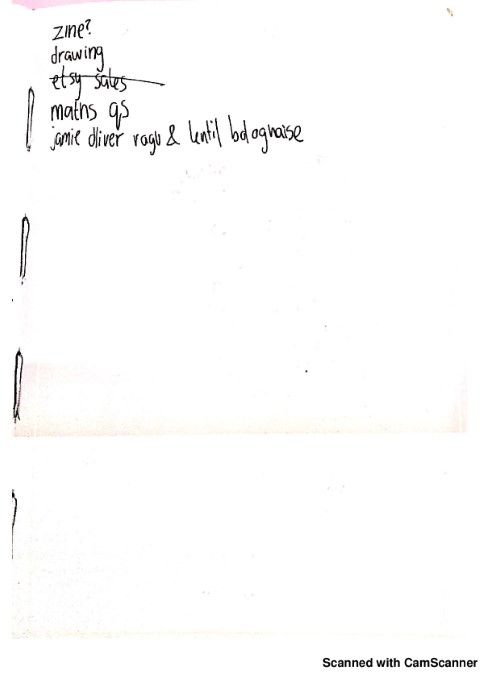 zine?
drawing
etsy sales
maths qs
jamie oliver ragu & lentil bolognaise
Scanned with CamScanner